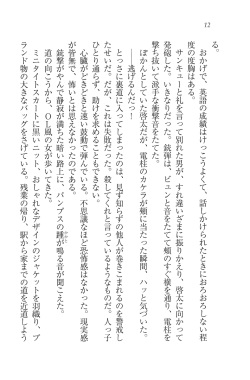 12
る。
おかげで、英語の成績はけっこうよくて、話しかけられたときにおろおろしない程
度の度胸はある。
サンキューと礼を言って別れた男が、すれ違いざまに振りかえり、啓太に向かって
発砲したのは、いったいどういうわけだろう。銃弾は、ビュンと音をたて、電柱を
撃ち抜いて派手な衝撃音をたてた。
ぽかんとしていた啓太だが、電柱のカケラが頬に当たった瞬間、ハッと気づいた。
――逃げるんだっ！
とっさに裏道に入ってしまったのは、見ず知らずの他人が巻きこまれるのを警戒し
たせいだ。だが、これは失敗だった。殺してくれと言っているようなものだ。人っ子
ひとり通らず、助けを求めることもできない。
心臓がどきどきと速い鼓動で弾んでいる。不思議なほど恐怖感はなかった。現実感
が薄い。怖いとさえ思えなかったのである。
銃撃がやんで静寂が満ちた暗い路上に、パンプスの踵が鳴る音が聞こえた。
道の向こうから、ＯＬ風の女が歩いてきた。
ミニタイトスカートに黒いニット、おしゃれなデザインのジャケットを羽織り、ブ
ランド物の大きなバッグをさげている。残業の帰り、駅から家までの道を近道しよう